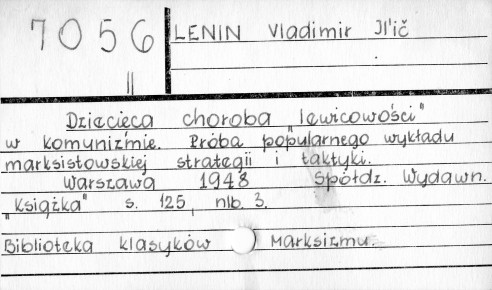 7056
II
LENIN Vladimir Il'ič
Dziecięca choroba "lewicowości"
w komuniźmie. Próba popularnego wykładu
marksistowskiej strategii i taktyki.
Warszawa 1948 Spółdz. Wydawn.
"Książka" s. 125, nlb. 3.
Biblioteka klasyków marksizmu.